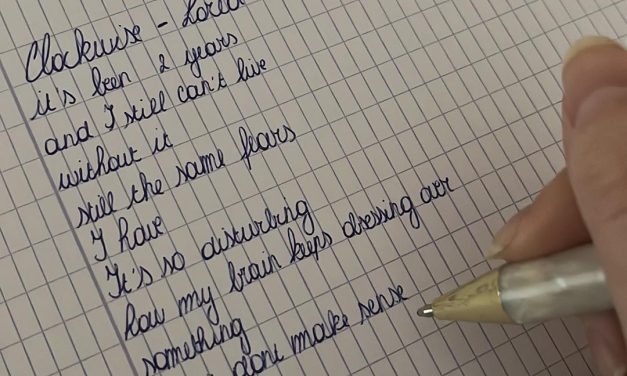 Clockwise -
it's been 2 years
and I still can't live
without it
still the same fears
I have
It's so disturbing
how my brain keeps dressing over
something
dont make sense